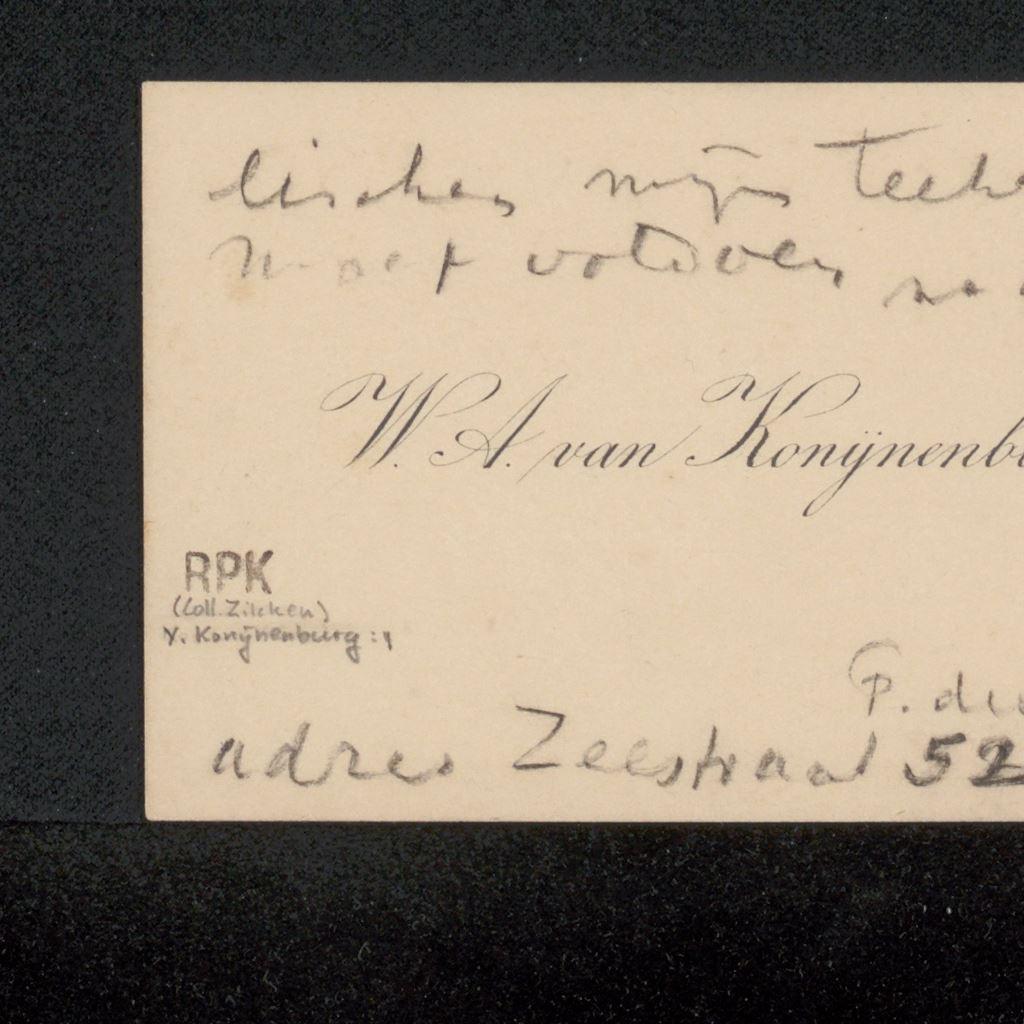 mijn Teeke
moet
W. A. van Konijnenbu
RPK
(Coll. Zilcken)
V. Konijnenburg: 1
P. de
adres Zeestraat 52